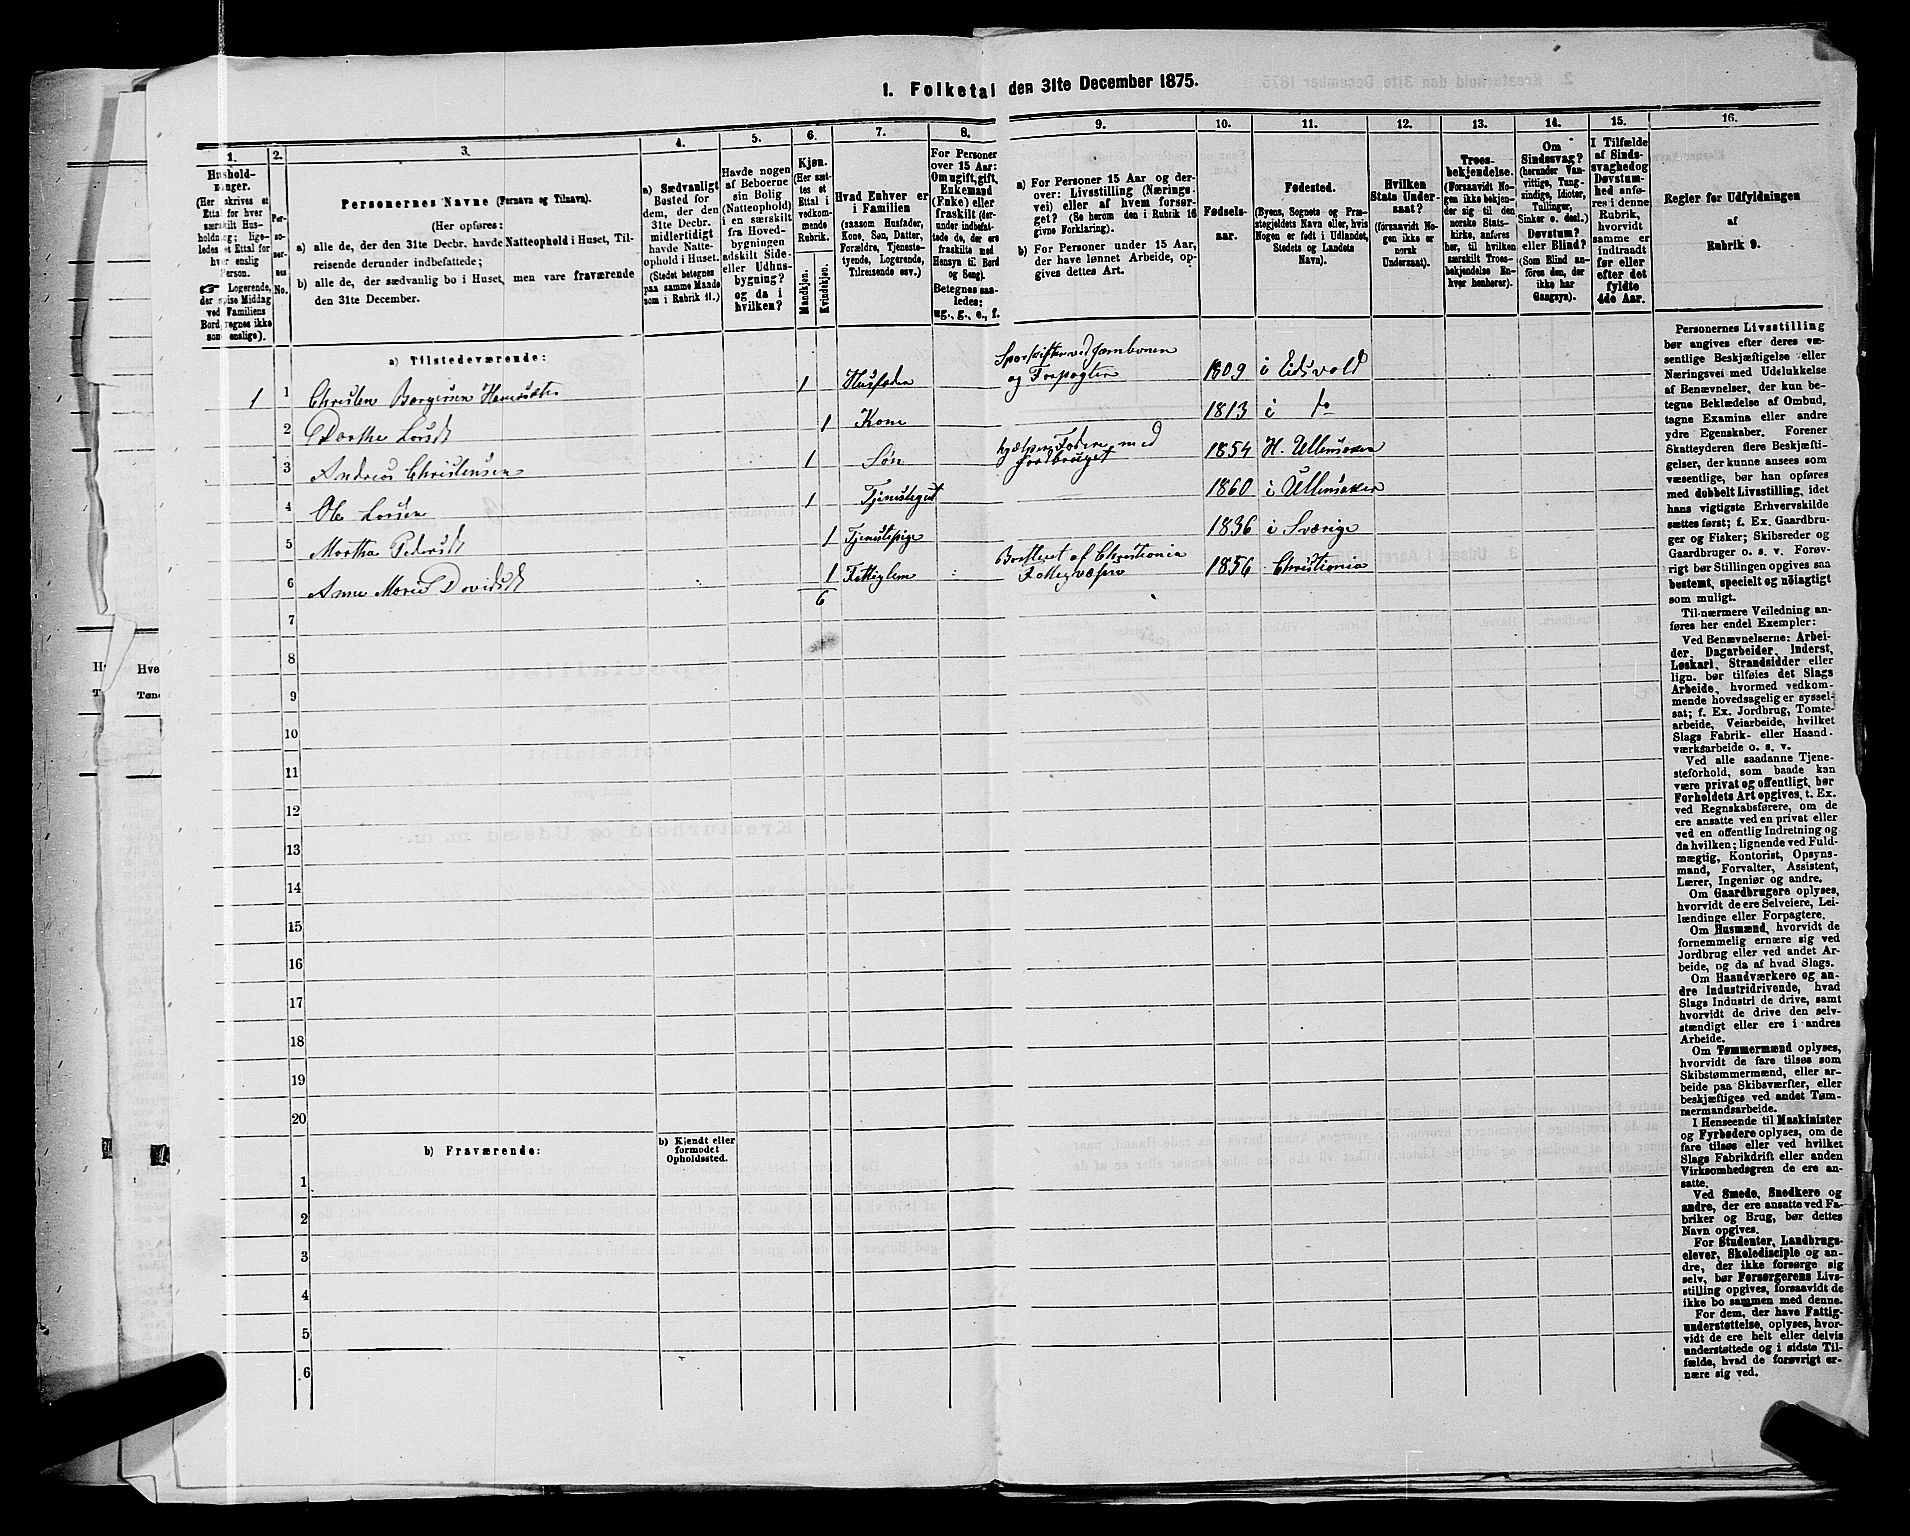 1. Folketal den 31te December 1875.
1.
2.
3.
4.
5.
6.
7.
8.
9.
10.
11.
12.
13.
14.
15.
16.
Hushold-
ninger.
(Her skrives et
Ettal for hver
særskilt Hus-
holdning; lige-
ledes et Ettal for
hver enslig
Person.
☞ Logerende,
der spise Middag
ved Familiens
Bord, regnes ikke
som enslige).
Per-
so-
ner-
nes
No.
Personernes Navne (Fornavn og Tilnavn).
(Her opføres:
a) alle de, der den 31te Decbr. havde Natteophold i Huset, Til-
reisende derunder indbefattede;
b) alle de, der sædvanlig bo i Huset, men vare fraværende
den 31te December.
a) Sædvanligt
Bosted for
dem, der den
31te Decbr.
midlertidigt
havde Natte-
ophold i Huset.
(Stedet betegnes
paa samme Maade
som i Rubrik 11.)
Havde nogen
af Beboerne
sin Bolig
(Natteophold)
i en særskilt
fra Hoved-
bygningen
adskilt Side-
eller Udhus-
bygning?
og da i
hvilken?
Kjøn.
(Her sæt-
tes et
Ettal i
vedkom-
mende
Rubrik.
Mandkjøn.
Kvindekjøn.
Hvad Enhver er
i Familien
(saasom Husfader,
Kone, Søn, Datter,
Forældre, Tjeneste-
tyende, Logerende,
Tilreisende osv.)
For Personer
over 15 Aar:
Om ugift, gift,
Enkemand
(Enke) eller
fraskilt (der-
under indbefat-
tede de, der ere
fraskilte med
Hensyn til Bord
og Seng).
Betegnes saa-
ledes:
ug., g., e., f.
a) For Personer 15 Aar og der-
over: Livsstilling (Nærings-
vei) eller af hvem forsør-
get? (Se herom den i Rubrik 16
givne Forklaring).
b) For Personer under 15 Aar,
der have lønnet Arbeide, op-
gives dettes Art.
Fødsels-
aar.
Fødested.
(Byens, Sognets og Præ-
stegjeldets Navn eller, hvis
Nogen er født i Udlandet,
Stedets og Landets
Navn).
Hvilken
Stats Under-
saat?
(forsaavidt No-
gen ikke er
norsk
Undersaat).
Troes-
bekjendelse.
(Forsaavidt No-
gen ikke bekjen-
der sig til den
norske Stats-
kirke, anføres
her, til hvilken
særskilt Troes-
bekjendelse En-
hver henhører).
Om
Sindssvag?
(herunder Van-
vittige, Tung-
sindige, Idioter,
Tullinger,
Sinker o. desl.)
Døvstum?
eller Blind?
(Som Blind an-
føres den, der
ikke har
Gangsyn).
I Tilfælde
af Sinds-
svaghed og
Døvstum-
hed anfø-
res i denne
Rubrik,
hvorvidt
samme er
indtraadt
før eller
efter det
fyldte
4de Aar.
Regler for Udfyldningen
af
Rubrik 9.
a) Tilstedeværende:
1 1 Christen Borgersen 1 Husfader og Forpagter 1809 i Eidsvold
2 Dorthe Larsdt 1 Kone 1813 i do
3 Andreas Christensen 1 Søn hjælper Faderen med Jordbruget 1854 H. Ullensaker
4 Ole Larsen 1 Tjenestegut 1860 i Ullensaker
5 Martha Pedersdt 1 Tjenestepige 1836 i Sverige
6 Anne Marie Davidsdt 1 Fattiglem Bortsat af Christiania Fattigvæsen 1856 Christiania
6
7
8
9
10
11
12
13
14
15
16
17
18
19
20
b) Fraværende:
b) Kjendt eller
formodet
Opholdssted.
1
2
3
4
5
6
Personernes Livsstilling
bør angives efter deres væ-
sentlige Beskjæftigelse eller
Næringsvei med Udelukkelse
af Benævnelser, der kun be-
tegne Beklædelse af Ombud,
tagne Examina eller andre
ydre Egenskaber. Forener
Skatteyderen flere Beskjæfti-
gelser, der kunne ansees som
væsentlige, bør han opføres
med dobbelt Livsstilling, idet
hans vigtigste Erhvervskilde
sættes først; f. Ex. Gaardbru-
ger og Fisker; Skibsreder og
Gaardbruger o. s. v. Forøv-
rigt bør Stillingen opgives saa
bestemt, specielt og nøiagtigt
som muligt.
Til nærmere Veiledning an-
føres her endel Exempler:
Ved Benævnelserne: Arbei-
der, Dagarbeider, Inderst,
Løskarl, Strandsidder eller
lign. bør tilføies det Slags
Arbeide, hvormed vedkom-
mende hovedsagelig er syssel-
sat; f. Ex. Jordbrug, Tomte-
arbeide, Veiarbeide, hvilket
Slags Fabrik- eller Haand-
værksarbeide o. s. v.
Ved alle saadanne Tjene-
steforhold, som baade kan
være privat og offentligt, bør
Forholdets Art opgives, t. Ex.
ved Regnskabsførere, om de
ere ansatte ved en privat eller
ved en offentlig Indretning og
da hvilken; lignende ved Fuld-
mægtig, Kontorist, Opsyns-
mand, Forvalter, Assistent,
Lærer, Ingeniør og andre.
Om Gaardbrugere oplyses,
hvorvidt de ere Selveiere, Lei-
lændinge eller Forpagtere.
Om Husmænd, hvorvidt de
fornemmelig ernære sig ved
Jordbrug eller ved andet Ar-
beide, og da af hvad Slags.
Om Haandværkere og an-
dre Industridrivende, hvad
Slags Industri de drive, samt
hvorvidt de drive den selv-
stændigt eller ere i andres
Arbeide.
Om Tømmermænd oplyses,
hvorvidt de fare tilsøs som
Skibstømmermænd, eller ar-
beide paa Skibsværfter, eller
beskjæftiges ved andet Tøm-
mermandsarbeide.
I Henseende til Maskinister
og Fyrbødere oplyses, om de
fare tilsøs eller ved hvilket
Slags Fabrikdrift eller anden
Virksomhedsgren de ere an-
satte.
Ved Smede, Snedkere og
andre, der ere ansatte ved Fa-
briker og Brug, bør dettes
Navn opgives.
For Studenter, Landbrugs-
elever, Skoledisciple og an-
dre, der ikke forsørge sig
selv, bør Forsørgerens Livs-
stilling opgives, forsaavidt de
ikke bo sammen med denne.
For dem, der have Fattig-
understøttelse, oplyses, hvor-
vidt de ere helt eller delvis
understøttede og i sidste Til-
fælde, hvad de forøvrigt er-
nære sig ved.